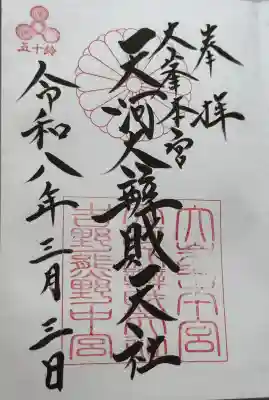 奉拝
大峯本宮
天河大辨財天社
令和八年三月三日
五十鈴
吉野熊野中宮